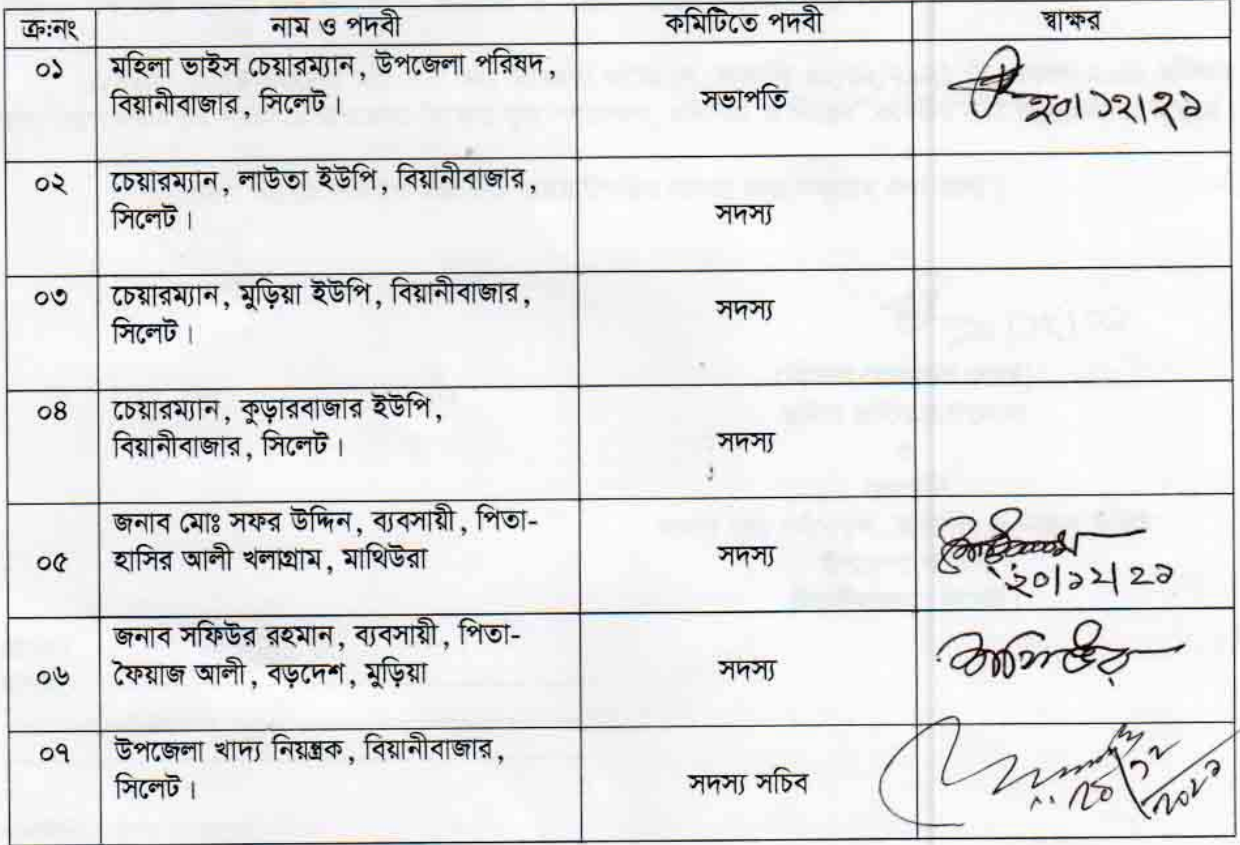 ক্র:নং নাম ও পদবী কমিটিতে পদবী স্বাক্ষর
০১ মহিলা ভাইস চেয়ারম্যান, উপজেলা পরিষদ,
বিয়ানীবাজার, সিলেট। সভাপতি ২০/১২/২১
০২ চেয়ারম্যান, লাউতা ইউপি, বিয়ানীবাজার,
সিলেট। সদস্য
০৩ চেয়ারম্যান, মুড়িয়া ইউপি, বিয়ানীবাজার,
সিলেট। সদস্য
০৪ চেয়ারম্যান, কুড়ারবাজার ইউপি,
বিয়ানীবাজার, সিলেট। সদস্য
জনাব মোঃ সফর উদ্দিন, ব্যবসায়ী, পিতা-
০৫ হাসির আলী খলাগ্রাম, মাথিউরা সদস্য
২০/১২/২১
জনাব সফিউর রহমান, ব্যবসায়ী, পিতা-
০৬ ফৈয়াজ আলী, বড়দেশ, মুড়িয়া সদস্য
০৭ উপজেলা খাদ্য নিয়ন্ত্রক, বিয়ানীবাজার,
সিলেট। সদস্য সচিব